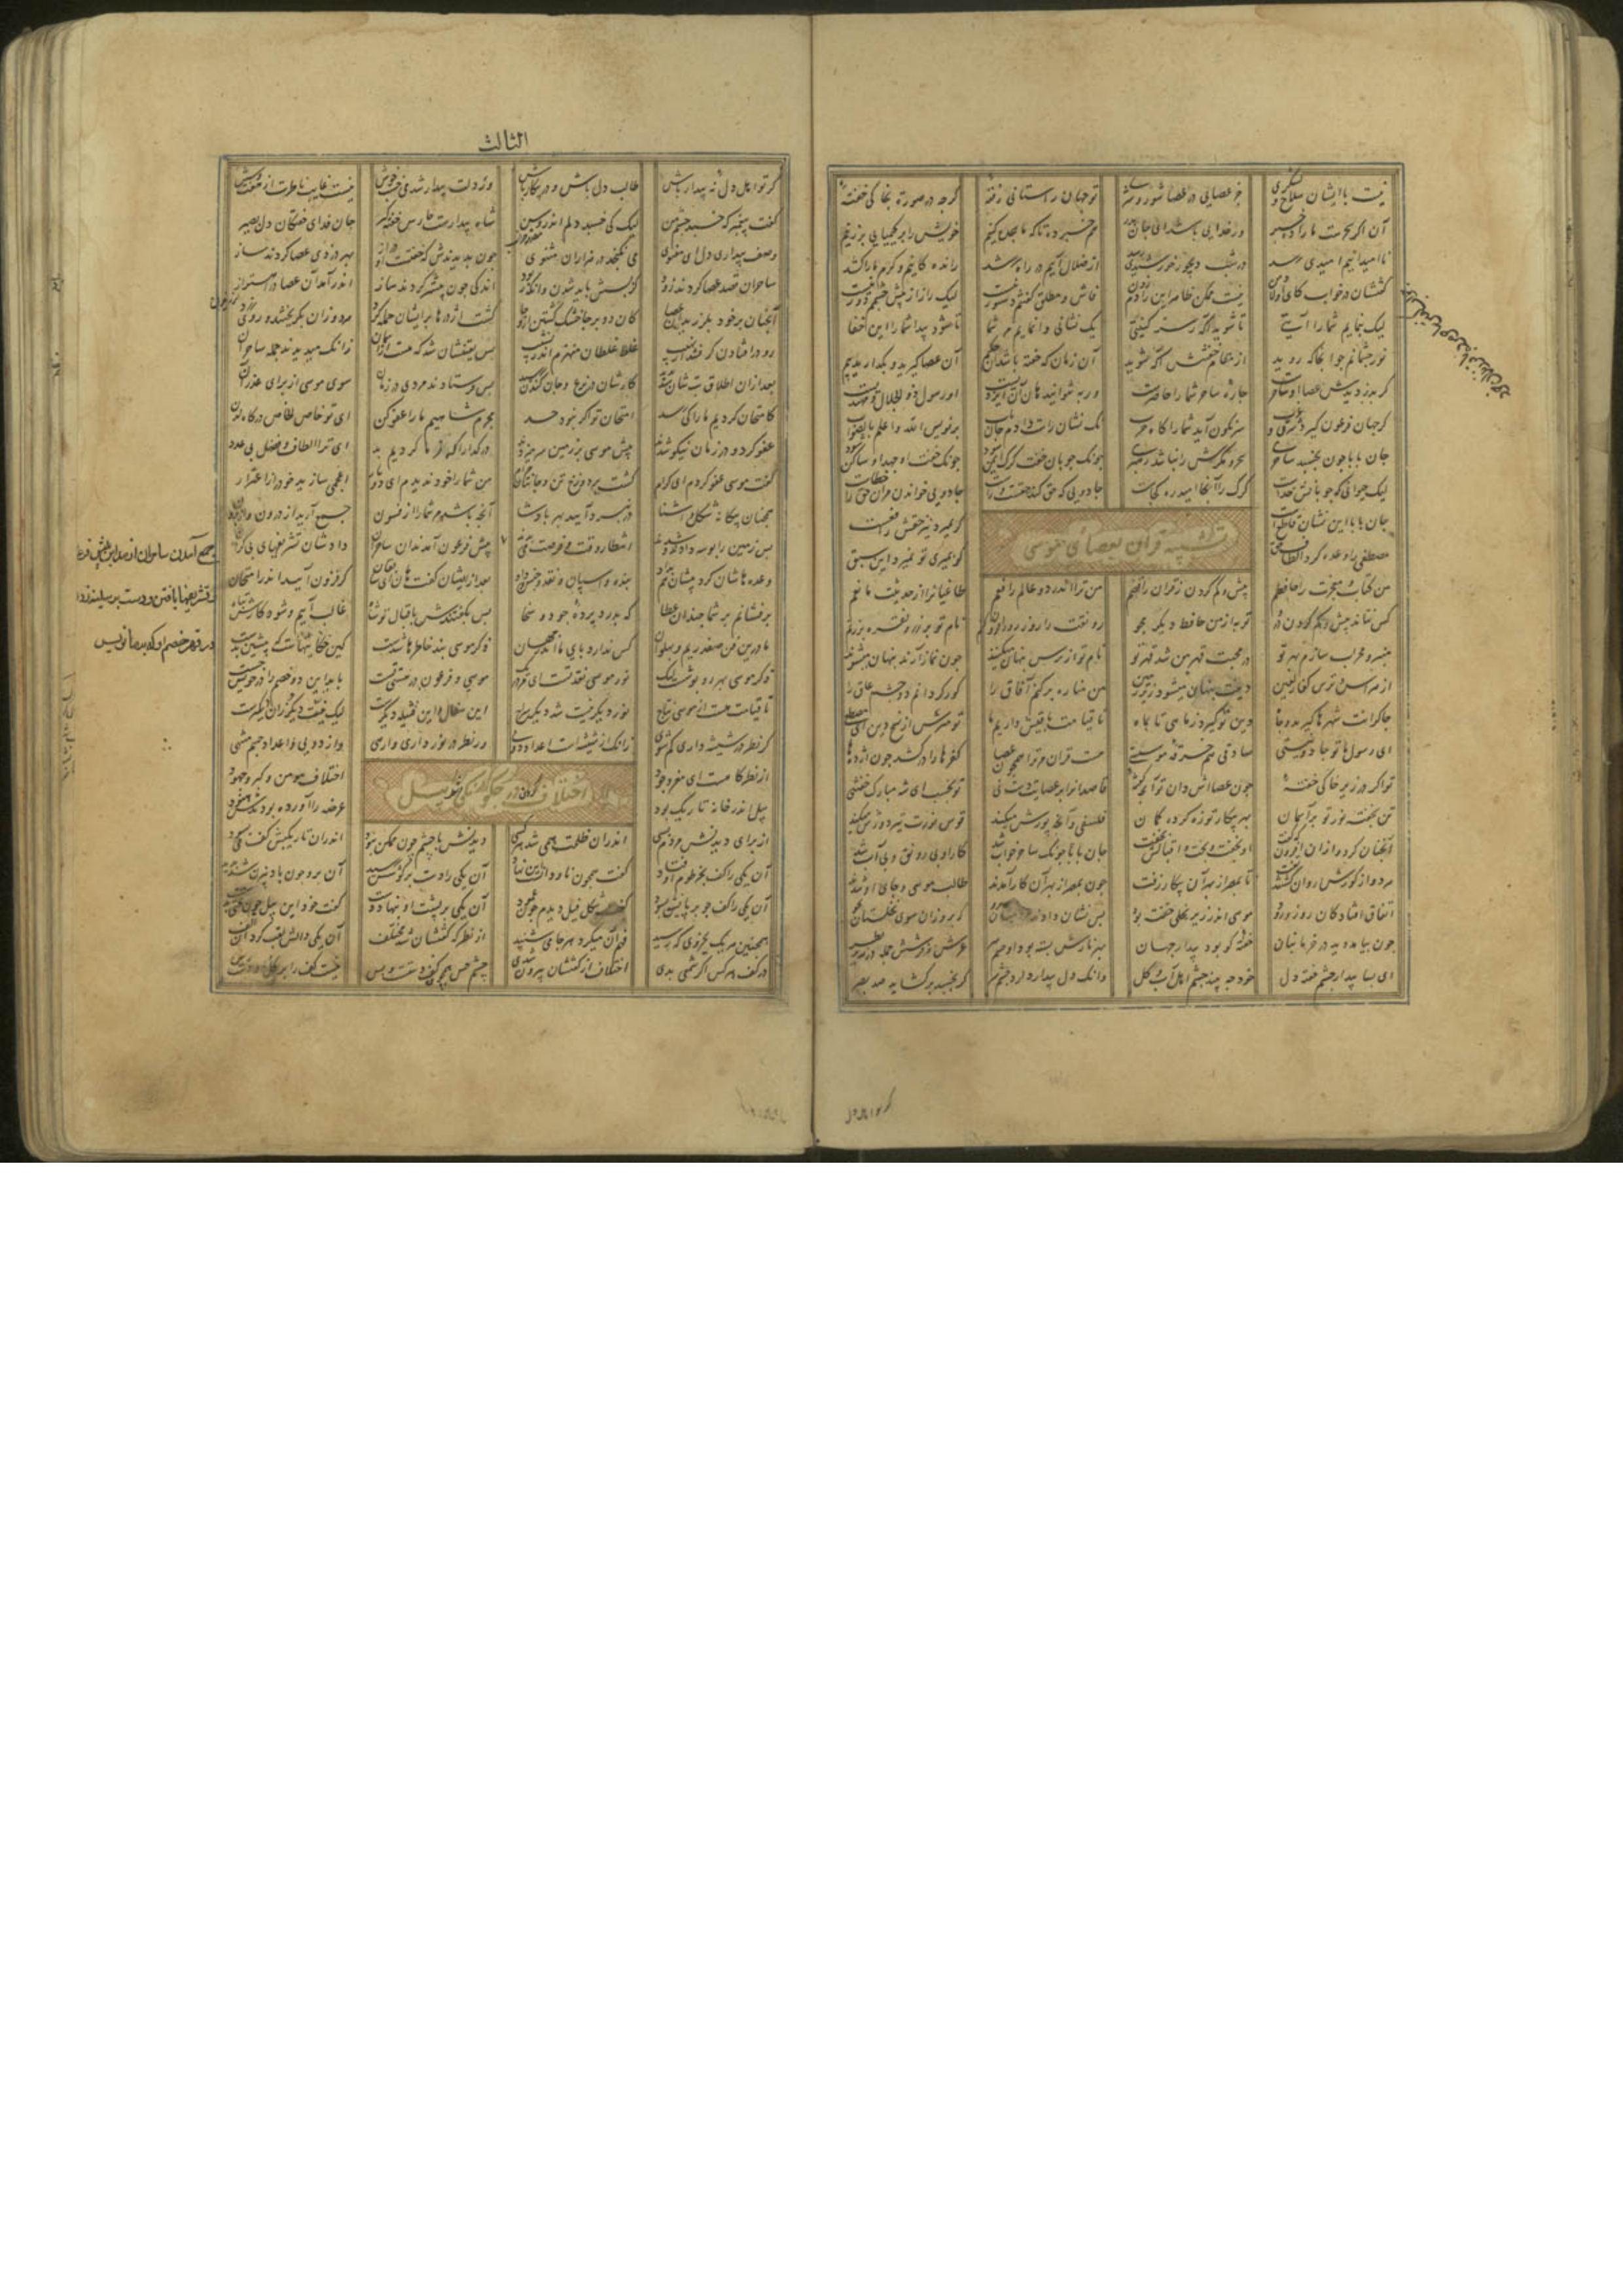 نیست با ایشان سلاح و لشکری جز عصایی و در عصا شور و شری تو جهان راستانی رفته کرچه در صورت بخاکی خفته
آن اکر سحرست ما را ده خبر ور خدایی باشد ای جان پدر هم خبر ده تا که ما سجده کنیم خویش را بر کیمیایی بر زنیم
ناامیدانیم امیدی رسد در شب دیجور خورشیدی رسد از ضلال آییم در راه رشد رانده کانیم و کرم ما را کشد
کفتشان در خواب کای اولاد من نیست ممکن ظاهر این را دم زدن فاش و مطلق کفتنم دستور نیست لیک راز از پیش چشمم دور نیست
لیک بنمایم شما را آیتی تا شوید آکه ز سر کنیتی یک نشانی وا نمایم مر شما تا شود پیدا شما را این خفا
نور چشمانم چو آنجا که روید از مقام خفتنش آکه شوید آن زمان که خفته باشد آن حکیم آن عصا کیرید و بکذارید بیم
کر بدزدیدش عصا او ساحرست چاره ساحر شما را حاضرست ور نه نتوانید هان آن ایزدیست او رسول ذو الجلال و مهتدیست
کر جهان فرعون کیرد شرق و غرب سرنکون آید شما را کاه حرب نک نشان راست دادم جان باب بر نویس الله اعلم بالصواب
جان بابا چون بخسبد ساحری سحر و مکرش را نباشد رهبری چونک چوپان خفت کرک ایمن شود چونک خفت او جهد او ساکن شود
لیک حیوانی که چوپانش خداست کرک را آنجا امید و ره کجاست جادویی که حق کند حقست و راست جادویی خواندن مر آن حق را خطاست
جان بابا این نشان قاطعست کر بمیرد نیز حقش رافعست
تشبیه قران بعصای موسی
مصطفی را وعده کرد الطاف حق کر بمیری تو نمیرد این سبق
من کتاب و معجزت را حافظم بیش و کم کردن ز قران رافضم من ترا اندر دو عالم رافعم طاغیان را از حدیثت مانعم
کس نتاند بیش و کم کردن درو تو به از من حافظ دیکر مجو رونقت را روز روز افزون کنم نام تو بر زر و نقره بر زنم
منبر و محراب سازم بهر تو در محبت قهر من شد قهر تو نام تو از ترس پنهان میکنند چون نماز آرند پنهان میشوند
از هراس و ترس کفار لعین دینت پنهان میشود زیر زمین من مناره بر کنم آفاق را کور کردانم دو چشم عاق را
چاکرانت شهرها کیرند و جاه دین تو کیرد ز ماهی تا بماه تا قیامت باقیش داریم ما تو مترس از نسخ دین ای مصطفی
ای رسول ما تو جادو نیستی صادقی هم خرقه موسیستی هست قران مر ترا همچون عصا کفرها را در کشد چون اژدها
تو اکر در زیر خاکی خفته چون عصااش دان تو آنچ کفته قاصدانرا بر عصایت دست نی تو بخسب ای شه مبارک خفتنی
تن بخفته نور تو بر آسمان بهر پیکار تو زه کرده کمان فلسفی و آنچ پوزش میکند قوس نورت تیر دوزش میکند
آنچنان کرد و از آن افزون که کفت او بخفت و بخت و اقبالش نخفت جان بابا چونک ساحر خواب شد کار او بی رونق و بی آب شد
هر دو از کورش روان کشتند تفت تا بمصر از بهر آن پیکار زفت چون بمصر از بهر آن کار آمدند طالب موسی و جای او شدند
اتفاق افتاد کان روز ورود موسی اندر زیر نخلی خفته بود پس نشان دادندشان کرد بروزان سوی نخلستان بجو
چون بیامد دید در خرمابنان خفته کو بود بیدار جهان بهر نازش بسته بود او چشم سر عرش و فرشش جمله در زیر نظر
ای بسا بیدار چشم خفته دل خود چه بیند چشم اهل آب و کل وانک دل بیدار دارد چشم سر کر بخسبد بر کشاید صد بصر
الثالث
کر تو اهل دل نه بیدار باش طالب دل باش و در پیکار باش ور دلت بیدار شد میخسب خوش نیست غایب ناظرت از هفت و شش
کفت پیغمبر که خسبد چشم من لیک کی خسبد دلم اندر وسن شاه بیدارست حارس خفته کیر جان فدای خفتکان دل بصیر
وصف بیداری دل ای معنوی می نکنجد در هزاران مثنوی چون بدیدندش که خفتست او دراز بهر دزدی عصا کردند ساز
ساحران قصد عصا کردند زود کز پسش باید شدن وانکه ربود اندکی چون پیشتر کردند ساز اندر آمد آن عصا در اهتزاز
آنچنان بر خود بلرزید آن عصا کان دو بر جا خشک کشتند از وجا کشت اژدرها بر ایشان حمله کرد هر دو زان بکریختند و روی زرد
رو در افتادن کرفتند از نهیب غلط غلطان منهزم اندر نشیب پس یقینشان شد که هست از آسمان زانک میدیدند حد ساحران
بعد ازان اطلاق و تب شان شد پدید کارشان در نزع و جان کندن رسید پس فرستادند مردی در زمان سوی موسی از برای عذر آن
کامتحان کردیم ما را کی رسد امتحان تو اکر نبود حسد مجرم شاهیم ما را عفو کن ای تو خاص الخاص درکاه لدن
عفو کرد و در زمان نیکو شدند پیش موسی بر زمین سر میزدند درکذار ما کردیم بد ای ترا الطاف و فضل بی عدد
کفت موسی عفو کردم ای کرام کشت بر دوزخ تن و جانتان حرام من شما را خود ندیدم ای دو یار اعجمی سازید خود را ز اعتذار
همچنان بیکانه شکل و آشنا در نبرد آیید بهر پادشا آنچه باشد مر شما را از فنون جمع آرید از درون و از برون
پس زمین را بوسه دادند و شدند انتظار وقت و فرصت می بدند پیش فرعون آمدند آن ساحران دادشان تشریفهای بی کران
وعده هاشان کرد پیشین هم بداد بنده و اسپان و نقد و جنس و زاد بعد ازان کفت هان ای سابقان کر فزون آیید اندر امتحان
بر فشانم بر شما چندان عطا که بدرد پرده جود و سخا پس بکفتندش باقبال تو شاه غالب آییم و شود کارش تباه
ما درین فن صفدریم و پهلوان کس ندارد پای ما اندر جهان ذکر موسی بند خاطرها شدست کین حکایتهاست که پیشین بدست
ذکر موسی بهر روپوش است لیک نور موسی نقد تست ای مرد نیک موسی و فرعون در هستی تست باید این دو خصم را در خویش جست
تا قیامت هست از موسی نتاج نور دیکر نیست دیکر شد سراج این سفال و این فتیله دیکرست لیک نورش نیست دیکر زان سرست
کر نظر در شیشه داری کم شوی زانک از شیشه است اعداد دوی ور نظر در نور داری وارهی از دویی و اعداد جسم منتهی
از نظرکاهست ای مغز وجود اختلاف مومن و کبر و جهود
اختلاف کردن در چکونکی شکل پیل
پیل اندر خانه تاریک بود عرضه را آورده بودندش هنود
از برای دیدنش مردم بسی اندر آن ظلمت همی شد هر کسی دیدنش با چشم چون ممکن نبود اندر آن تاریکیش کف می بسود
آن یکی را کف بخرطوم اوفتاد کفت همچون ناودانست این نهاد آن یکی را دست بر کوشش رسید آن برو چون باد بیزن شد پدید
آن یکی را کف چو بر پایش بسود کفت شکل فیل دیدم چون عمود آن یکی بر پشت او بنهاد دست کفت خود این پیل چون تختی بدست
همچنین هر یک بجزوی که رسید فهم آن میکرد هر جا می شنید از نظرکه کفتشان شد مختلف آن یکی دالش لقب کرد آن الف
در کف هر کس اکر شمعی بدی اختلاف از کفتشان بیرون شدی چشم حس همچون کف دستست و بس نیست کف را بر
جمع آمدن ساحران از مداین پیش فرعون
و تشریفها یافتن و دست بر سینه زدن
در قهر خصم او که بر ما نویس